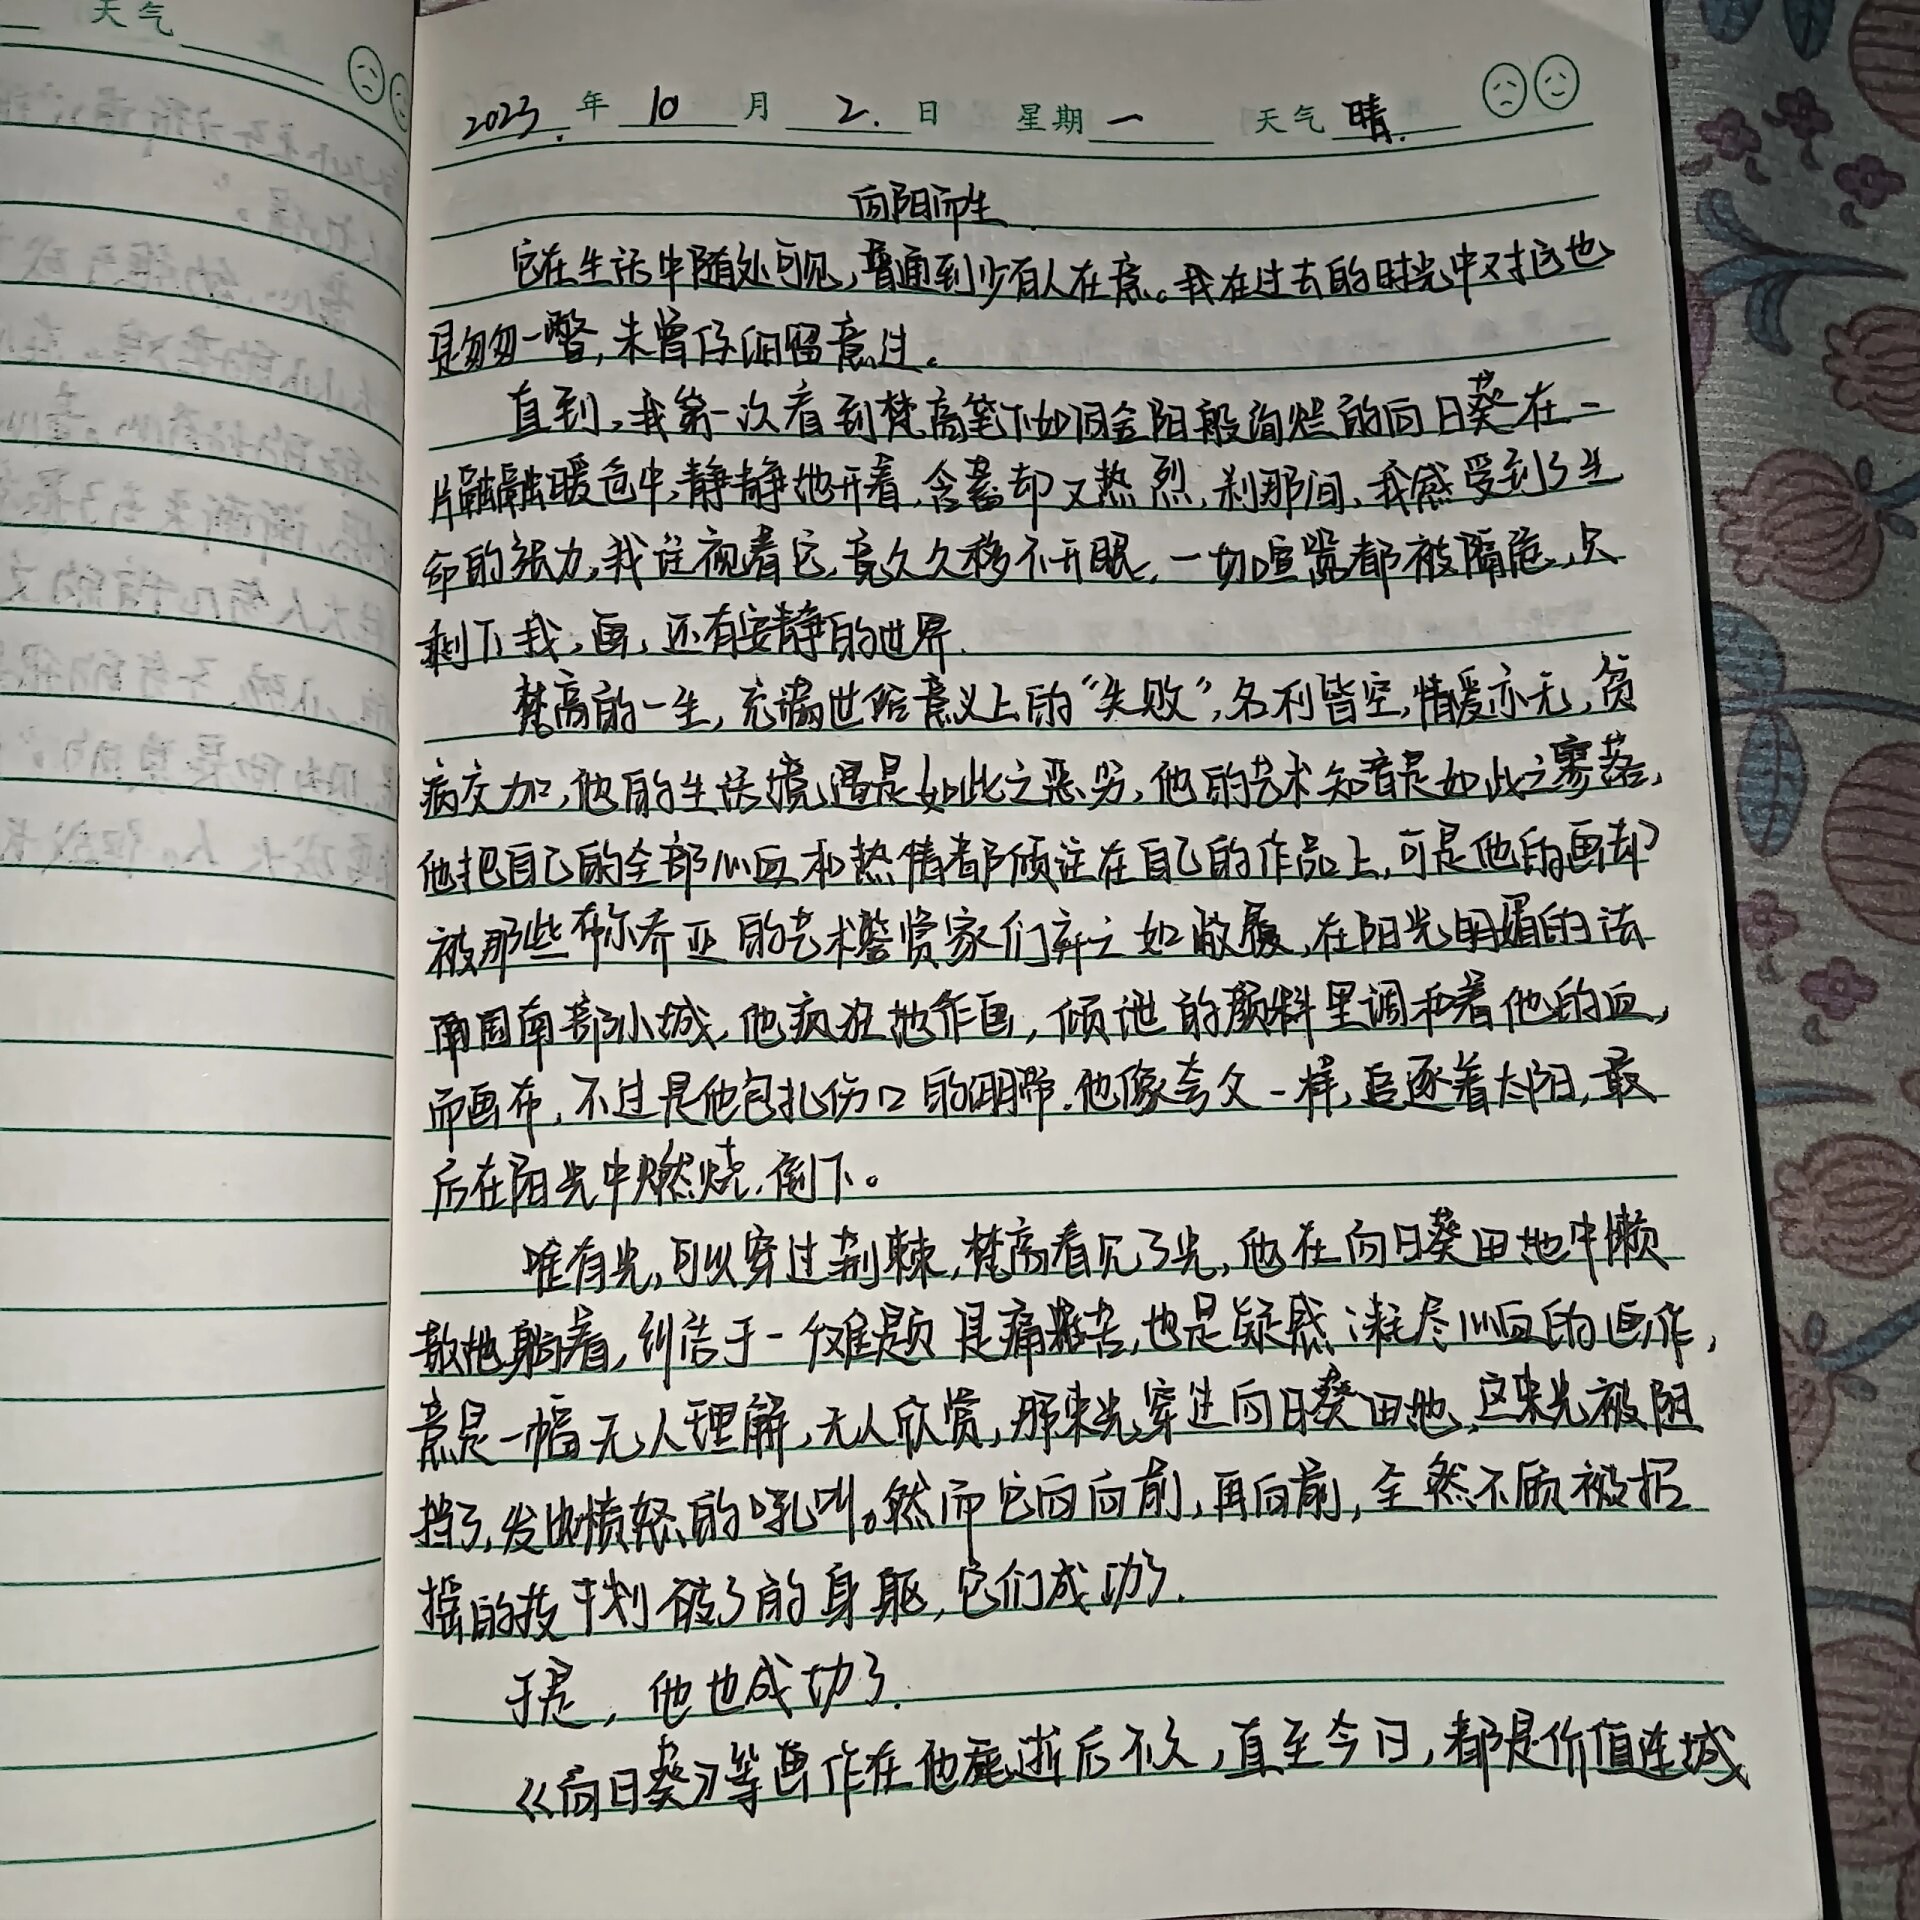 天气
2023.年 10 月 2. 日 星期 一 天气 晴.
向阳而生
它在生活中随处可见,普通到少有人在意。我在过去的时光中对它也
是匆匆一瞥,未曾仔细留意过。
直到,我第一次看到梵高笔下如同金阳般绚烂的向日葵在一
片融融暖色中,静静地开着,含蓄却又热烈,刹那间,我感受到了生
命的张力,我注视着它,竟久久移不开眼,一切喧嚣都被隔绝,只
剩下我,画,还有安静的世界.
梵高的一生,充满世俗意义上的“失败”,名利皆空,情爱亦无,贫
病交加,他的生活境遇是如此之恶劣,他的艺术知音是如此之寥落,
他把自己的全部心血和热情都倾注在自己的作品上,可是他的画却
被那些布尔乔亚的艺术鉴赏家们弃之如敝履,在阳光明媚的法
国南部小城,他疯狂地作画,倾泄的颜料里调和着他的血,
而画布,不过是他包扎伤口的绷带.他像夸父一样,追逐着太阳,最
后在阳光中燃烧,倒下。
唯有光,可以穿过荆棘,梵高看见了光,他在向日葵田地中懒
散地躺着,纠结于一个难题是痛苦,也是疑惑:耗尽心血的画作,
竟是一幅无人理解,无人欣赏,那束光穿过向日葵田地,这束光被阻
挡了,发出愤怒的吼叫。然而它向向前,再向前,全然不顾被招
摇的枝干划破了的身躯,它们成功了.
于是,他也成功了.
《向日葵》等画作在他死逝后不久,直至今日,都是价值连城